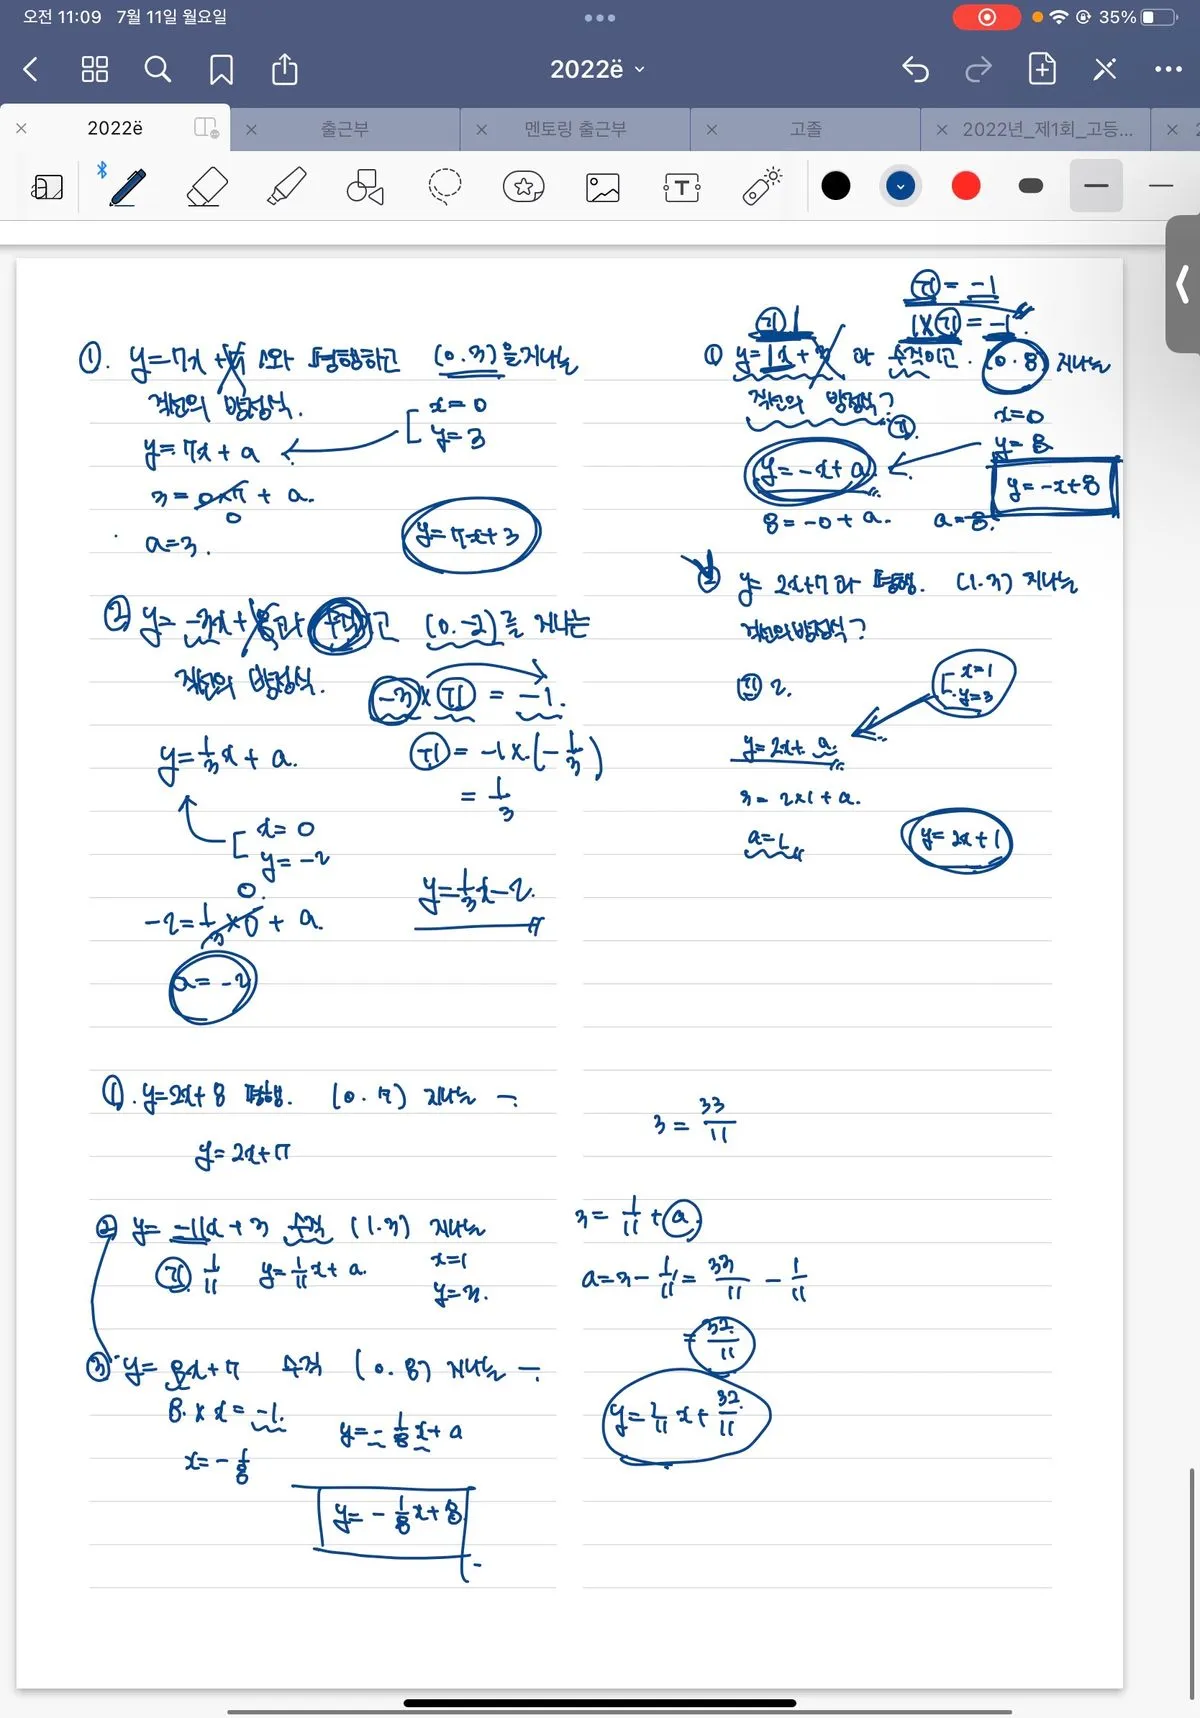 오전 11:09 7월 11일 월요일
35%
2022ë
2022ë
출근부
멘토링 출근부
고졸
2022년_제1회_고등...
2
T
①. y=7x+ 와 평행하고 (0.3)을 지나는
직선의 방정식.
x=0
y=3
y=7x+a
3=0×7+a.
0
a=3.
y=7x+3
② y=-3x+8과 수직이고 (0.-2)를 지나는
직선의 방정식.
-3×기=-1.
y=1/3x+a.
기=-1×(-1/3)
=1/3
x=0
y=-2
0.
-2=1/3×0+a.
y=1/3x-2.
a=-2
①. y=2x+8 평행. (0.7) 지나는
y=2x+7
② y=-11x+3 수직 (1.3) 지나는
기 1/11 y=1/11x+a.
x=1
y=3.
③ y=8x+7 수직 (0.8) 지나는
8.×x=-1.
y=-1/8x+a
x=-1/8
y=-1/8x+8
기=-1
1×기=-1.
기 1
① y=1x+ 과 수직이고. (0.8) 지나는
직선의 방정식?
x=0
y=8
y=-x+a
y=-x+8
8=-0+a. a=8.
② y=2x+7과 평행. (1.3) 지나는
직선의 방정식?
기 2.
x=1
y=3
y=2x+a
3=2×1+a.
a=1
y=2x+1
3=33/11
3=1/11+a
a=3-1/11=33/11-1/11
=32/11
y=1/11x+32/11